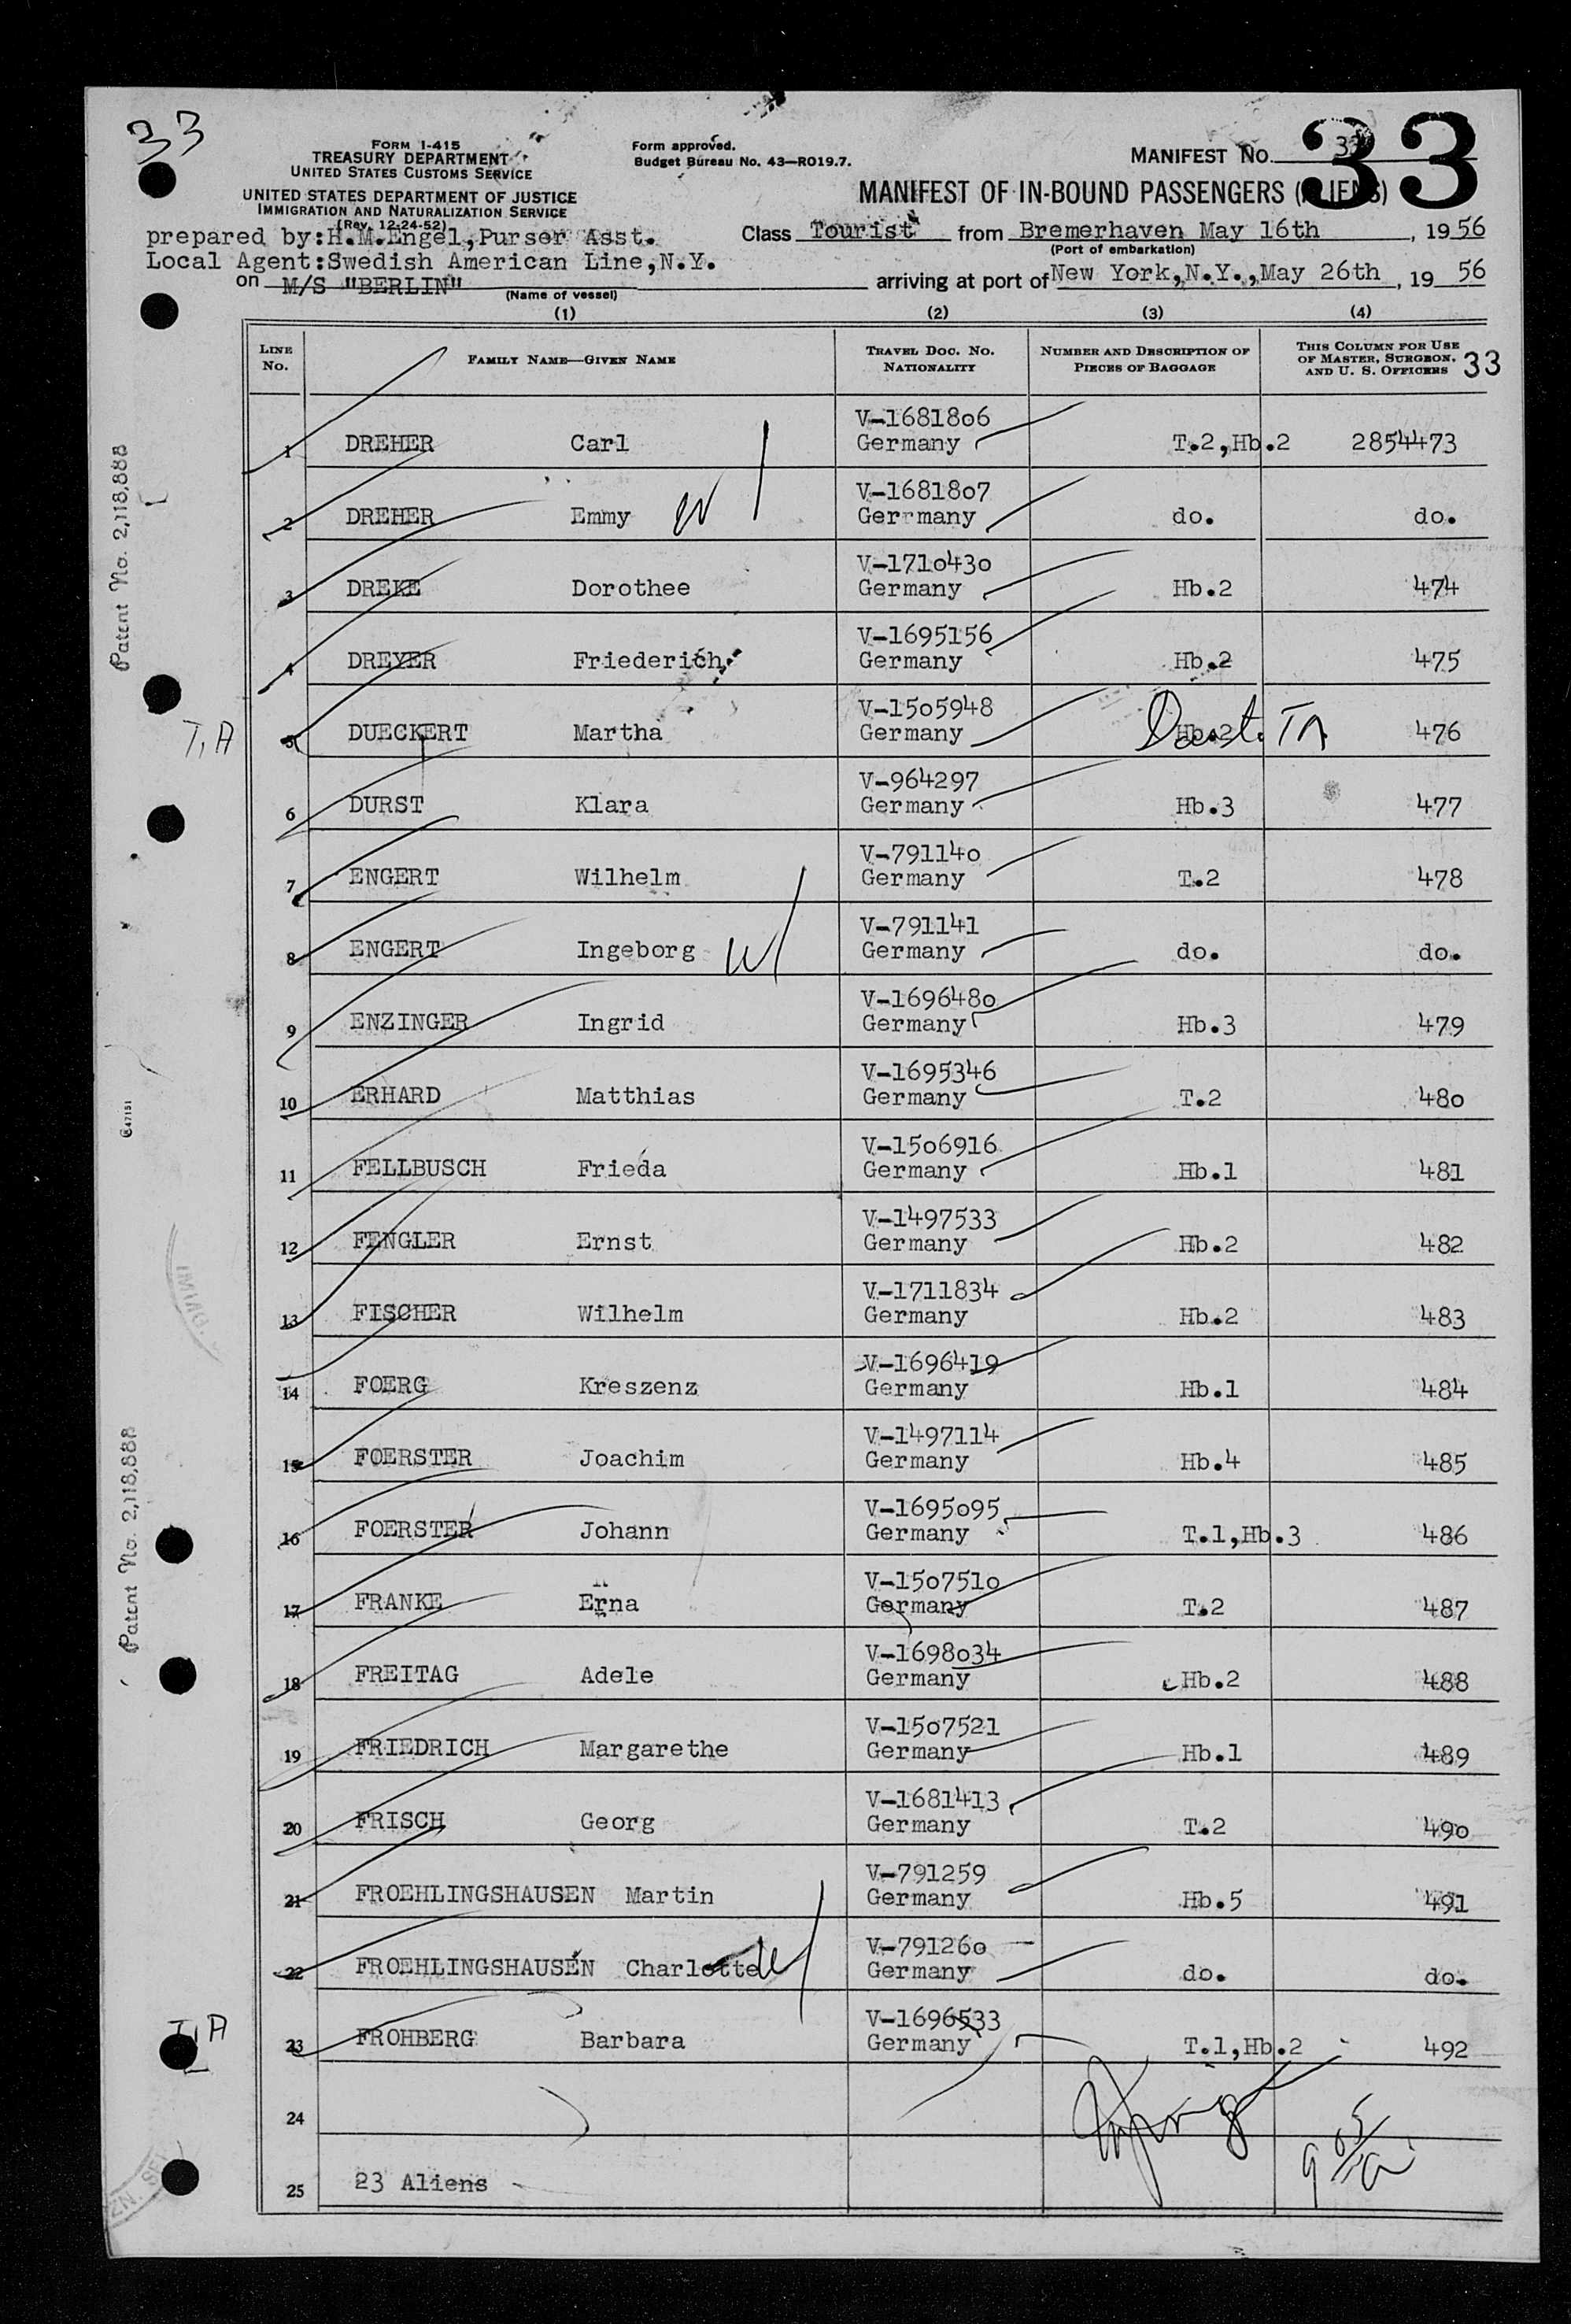 33
33
FORM I-415
TREASURY DEPARTMENT
UNITED STATES CUSTOMS SERVICE
UNITED STATES DEPARTMENT OF JUSTICE
IMMIGRATION AND NATURALIZATION SERVICE
(Rev. 12-24-52)
Form approved.
Budget Bureau No. 43—RO19.7.
MANIFEST NO. 33
MANIFEST OF IN-BOUND PASSENGERS (ALIENS)
prepared by:H.M.Engel,Purser Asst.
Class Tourist from Bremerhaven May 16th, 1956
(Port of embarkation)
Local Agent:Swedish American Line,N.Y.
on M/S "BERLIN"
(Name of vessel)
arriving at port of New York,N.Y.,May 26th, 19 56
(1) (2) (3) (4)
LINE NO. FAMILY NAME—GIVEN NAME TRAVEL DOC. NO. NATIONALITY NUMBER AND DESCRIPTION OF PIECES OF BAGGAGE THIS COLUMN FOR USE OF MASTER, SURGEON, AND U. S. OFFICERS 33
V-1681806
1 DREHER Carl Germany T.2,Hb.2 2854473
V-1681807
2 DREHER Emmy W Germany do. do.
V-1710430
3 DREKE Dorothee Germany Hb.2 474
V-1695156
4 DREYER Friederich Germany Hb.2 475
V-1505948
T,A 5 DUECKERT Martha Germany Hb.2 TA 476
V-964297
6 DURST Klara Germany Hb.3 477
V-791140
7 ENGERT Wilhelm Germany T.2 478
V-791141
8 ENGERT Ingeborg W Germany do. do.
V-1696480
9 ENZINGER Ingrid Germany Hb.3 479
V-1695346
10 ERHARD Matthias Germany T.2 480
V-1506916
11 FELLBUSCH Frieda Germany Hb.1 481
V-1497533
12 FENGLER Ernst Germany Hb.2 482
V-1711834
13 FISCHER Wilhelm Germany Hb.2 483
V-1696419
14 FOERG Kreszenz Germany Hb.1 484
V-1497114
15 FOERSTER Joachim Germany Hb.4 485
V-1695095
16 FOERSTER Johann Germany T.1,Hb.3 486
V-1507510
17 FRANKE Erna Germany T.2 487
V-1698034
18 FREITAG Adele Germany Hb.2 488
V-1507521
19 FRIEDRICH Margarethe Germany Hb.1 489
V-1681413
20 FRISCH Georg Germany T.2 490
V-791259
21 FROEHLINGSHAUSEN Martin Germany Hb.5 491
V-791260
22 FROEHLINGSHAUSEN Charlotte W Germany do. do.
V-1696533
23 FROHBERG Barbara Germany T.1,Hb.2 492
24
25 23 Aliens
Patent No. 2,118,888
Patent No. 2,118,888
IMMIG.